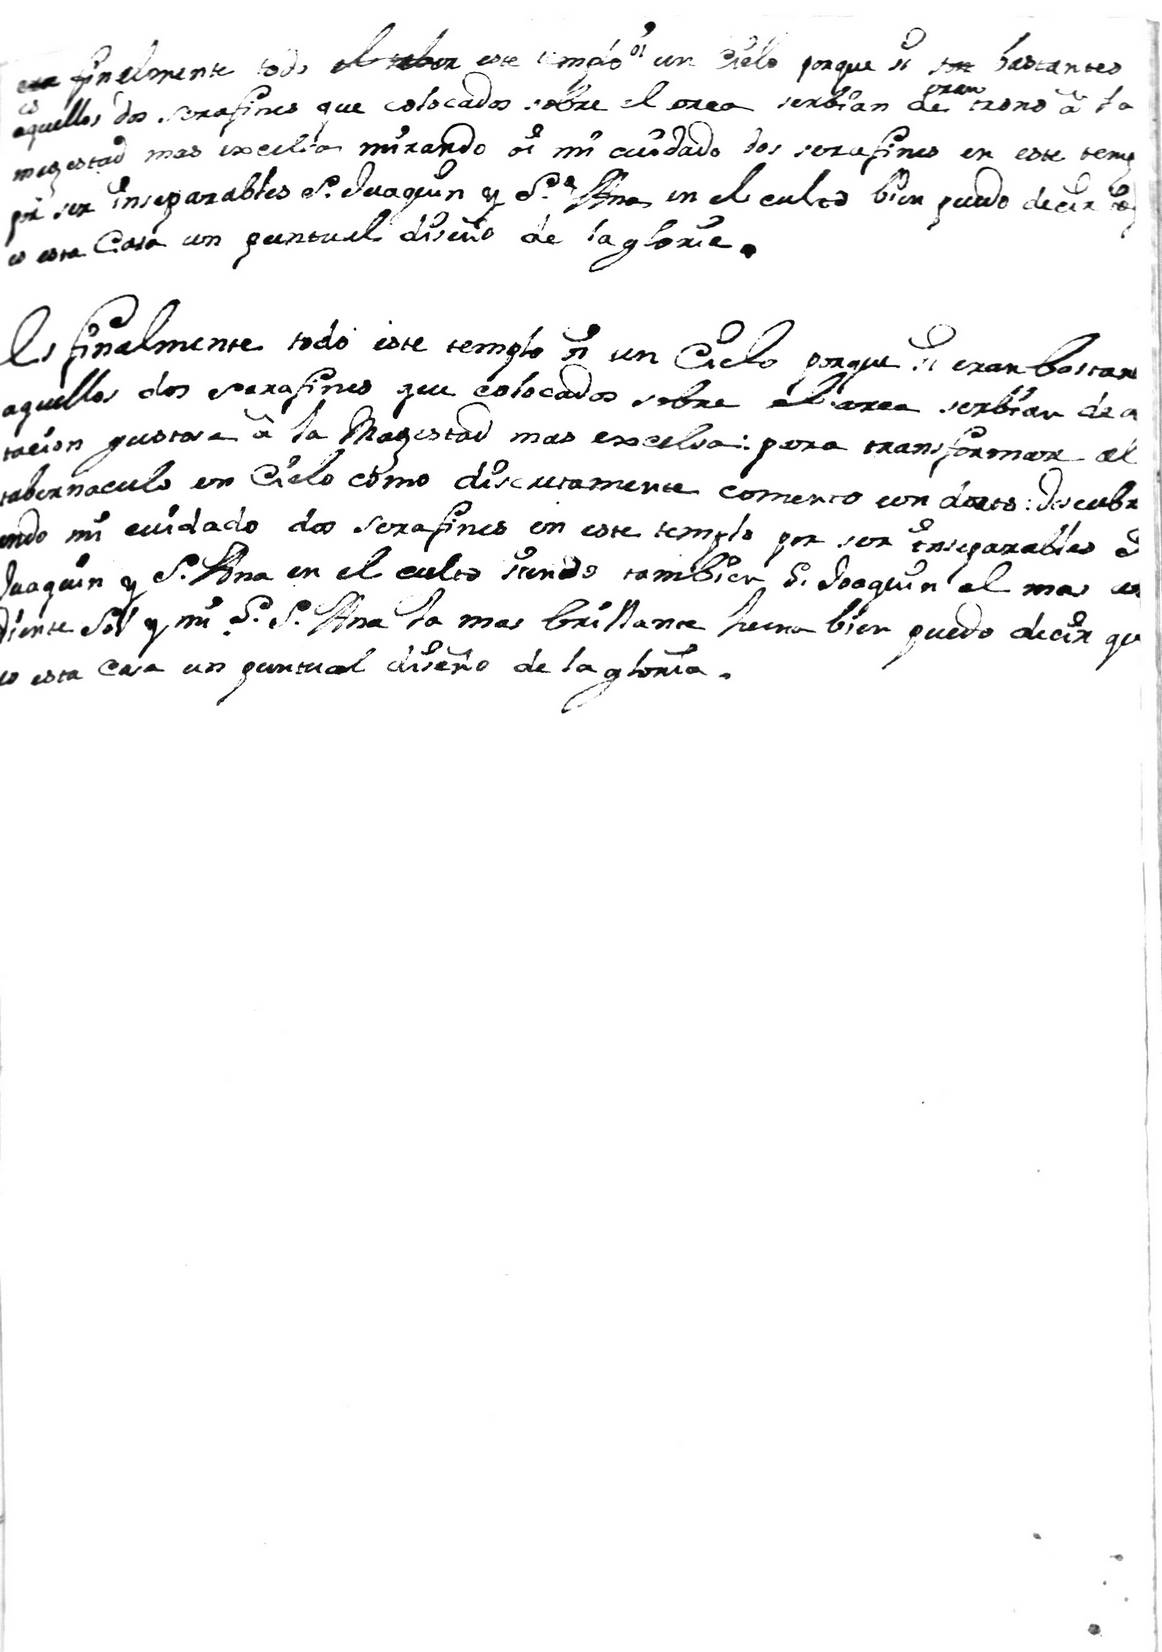 es finalmente todo este templo oi un Cielo porque si eran bastantes
aquellos dos serafines que colocados sobre el arca serbian de trono â la
magestad mas excelsa mirando oi mi cuidado dos serafines en este temp
por ser inseparables S.n Juaquin y S.ª Ana en el culto bien puedo decir
es esta Casa un puntual diseño de la gloria.
Es finalmente todo este templo oi un Cielo porque si eran bastan
aquellos dos serafines que colocados sobre el arca serbian de a
tacion gustosa â la Magestad mas excelsa: para transformar al
tabernaculo en Cielo como discretamente comento un docto: descubr
endo mi cuidado dos serafines en este templo por ser inseparables S
Juaquin y S. Ana en el culto siendo tambien S. Joaquin el mas
diente Sol y mi S.ª S. Ana la mas brillante luna bien puedo decir qu
es esta Casa un puntual diseño de la gloria.